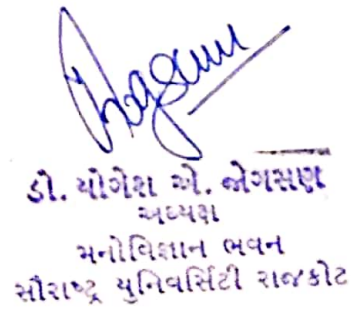 ડો. યોગેશ એ. જોગસણ
અધ્યક્ષ
મનોવિજ્ઞાન ભવન
સૌરાષ્ટ્ર યુનિવર્સિટી રાજકોટ